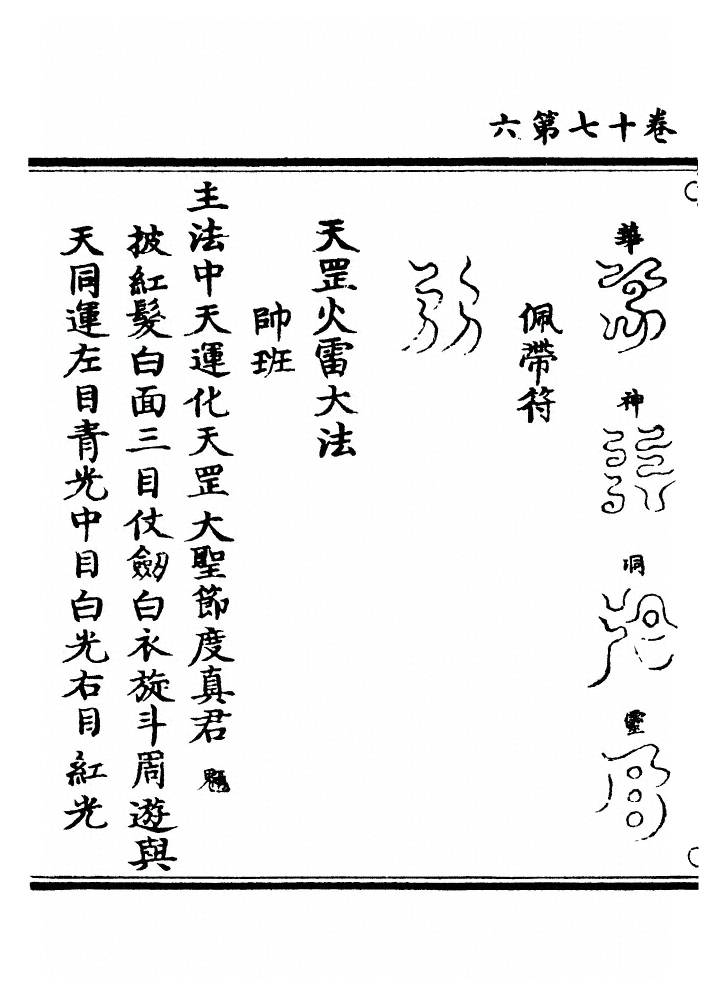 卷十七第六
華 神 洞 靈
佩帶符
天罡火雷大法
帥班
主法中天運化天罡大聖節度真君
披紅髮白面三目仗劒白衣旋斗周遊與
天同運左目青光中目白光右目紅光